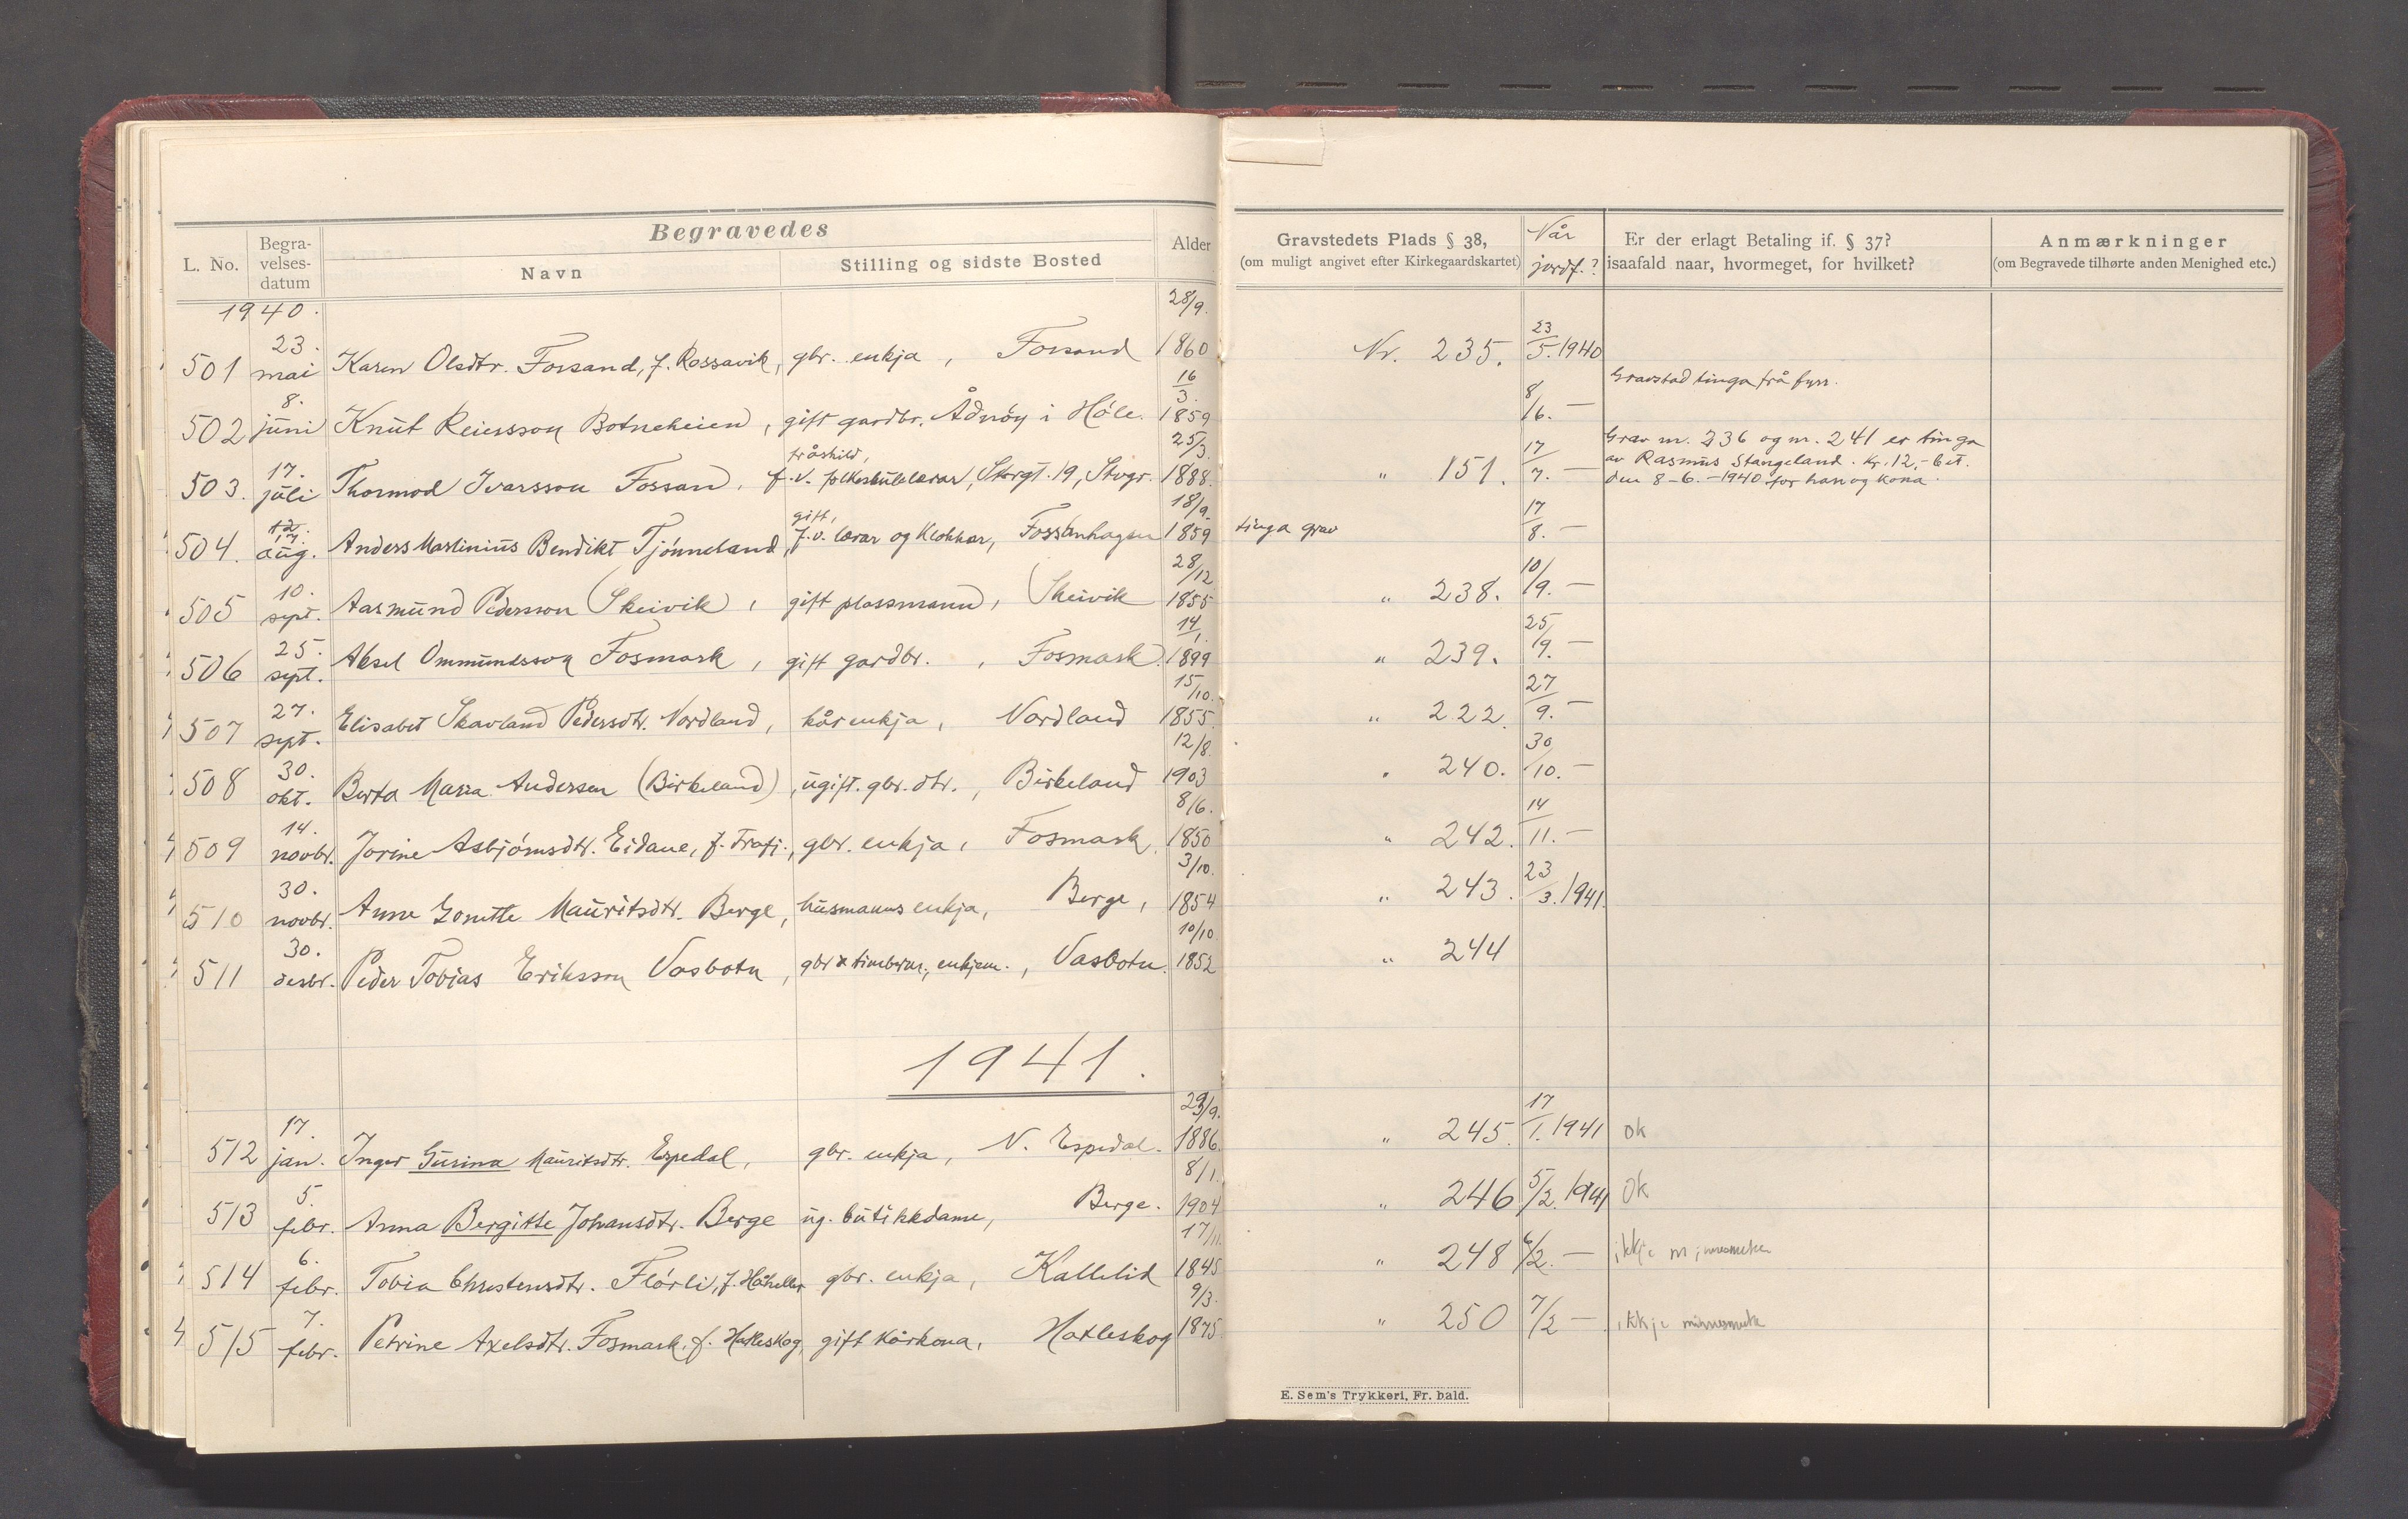 Begravedes
L. No.
Begra-
velses-
datum
Navn
Stilling og sidste Bosted
Alder
Gravstedets Plads § 38,
(om muligt angivet efter Kirkegaardskartet)
Når
jordf.?
Er der erlagt Betaling if. § 37?
isaafald naar, hvormeget, for hvilket?
Anmærkninger
(om Begravede tilhørte anden Menighed etc.)
1940.
501 23. mai Karen Olsdtr. Forsand, f. Rossavik, gbr. enkja, Forsand 28/9. 1860 Nr. 235. 23/5. 1940
Gravstad tinga frå fyrr.
502 8. juni Knut Reiersson Botneheien, gift gardbr. Ådnøy i Høle. 16/3. 1859 8/6. —
Grav nr. 236 og nr. 241 er tinga
av Rasmus Stangeland. Kr. 12,- bet.
den 8-6.-1940 for han og kona.
503. 17. juli Thormod Ivarsson Fossan, fråskild, f.v. folkeskulelærar, Storgt. 19, Stvgr. 25/3. 1888. " 151. 17/7. —
504. 17. aug. Anders Martinius Bendikt Tjønneland, gift, f.v. lærar og klokkar, Fossanhagen 18/9. 1859 tinga grav 17/8. —
505 10. sept. Aasmund Pedersson (Skeivik, gift plassmann, (Skeivik 28/12 1855 " 238. 10/9. —
506 25. sept. Aksel Ommundsson Fosmark, gift gardbr., Fosmark. 14/1. 1899 " 239. 25/9. —
507 27. sept. Elisabet Skavland Pedersdtr. Nordland, kårenkja, Nordland 15/10. 1855. " 222. 27/9. —
508 30. okt. Berta Maria Andersen (Birkeland), ugift. gbr. dtr., Birkeland 12/8. 1903 " 240. 30/10. —
509 14. novbr. Jorine Asbjørnsdtr. Eidane, f. Frafj., gbr. enkja, Fosmark. 8/6. 1850 " 242. 14/11. —
510 30. novbr. Anne Gonette Mauritsdtr. Berge, husmanns enkja, Berge, 3/10. 1854 " 243. 23/3. 1941.
511 30. desbr. Peder Tobias Eriksson Vasbotn, gbr & timberm., enkjem., Vasbotn. 10/10. 1852 " 244
1941.
512 17. jan. Inger Gurina Mauritsdtr. Espedal, gbr. enkja, N. Espedal. 29/9. 1886. " 245. 17/1. 1941 ok
513 5. febr. Anna Bergitte Johansdtr. Berge ug. butikkdame, Berge. 8/1. 1904 " 246 5/2. 1941 ok
514 6. febr. Tobia Christensdtr. Flørli, f. Håheller gbr. enkja, Kallelid 17/11. 1845 " 248 6/2. — ikkje minnesmerke
515 7. febr. Petrine Axelsdtr. Fosmark, f. Hatleskog, gift kårkona, Hatleskog 9/3. 1875 " 250 7/2 — ikkje minnesmerke
E. Sem's Trykkeri, Fr. hald.